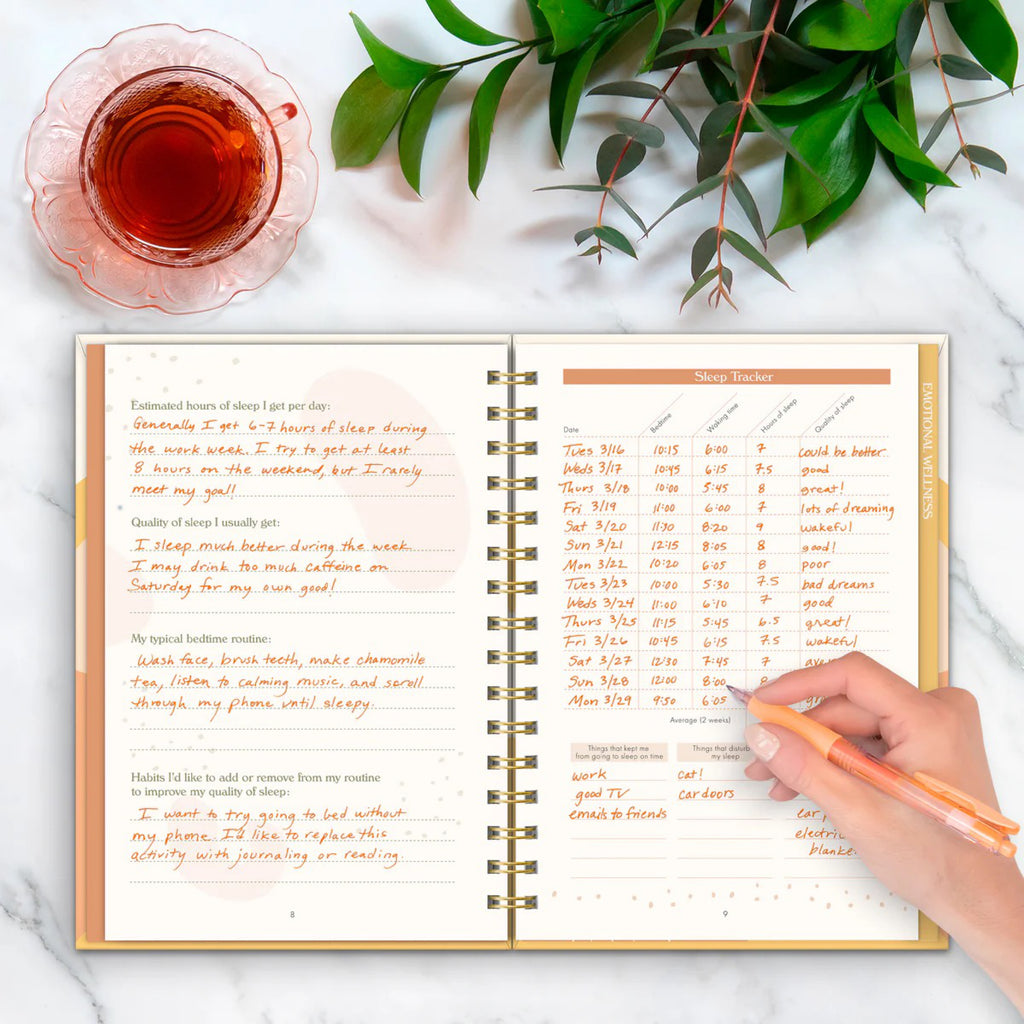 Estimated hours of sleep I get per day:
Generally I get 6-7 hours of sleep during
the work week. I try to get at least
8 hours on the weekend, but I rarely
meet my goal!
Quality of sleep I usually get:
I sleep much better during the week.
I may drink too much caffeine on
Saturday for my own good!
My typical bedtime routine:
Wash face, brush teeth, make chamomile
tea, listen to calming music, and scroll
through my phone until sleepy.
Habits I'd like to add or remove from my routine
to improve my quality of sleep:
I want to try going to bed without
my phone. I'd like to replace this
activity with journaling or reading.
8
Sleep Tracker
Date Bedtime Waking time Hours of sleep Quality of sleep
Tues 3/16 10:15 6:00 7 could be better
Weds 3/17 10:45 6:15 7.5 good
Thurs 3/18 10:00 5:45 8 great!
Fri 3/19 11:00 6:00 7 lots of dreaming
Sat 3/20 11:30 8:20 9 wakeful
Sun 3/21 12:15 8:05 8 good!
Mon 3/22 10:20 6:05 8 poor
Tues 3/23 10:00 5:30 7.5 bad dreams
Weds 3/24 11:00 6:10 7 good
Thurs 3/25 11:15 5:45 6.5 great!
Fri 3/26 10:45 6:15 7.5 wakeful
Sat 3/27 12:30 7:45 7
Sun 3/28 12:00 8:00 8
Mon 3/29 9:50 6:05
Average (2 weeks)
Things that kept me
from going to sleep on time
Things that
my sleep
work cat!
good TV car doors
emails to friends
9
EMOTIONAL WELLNESS